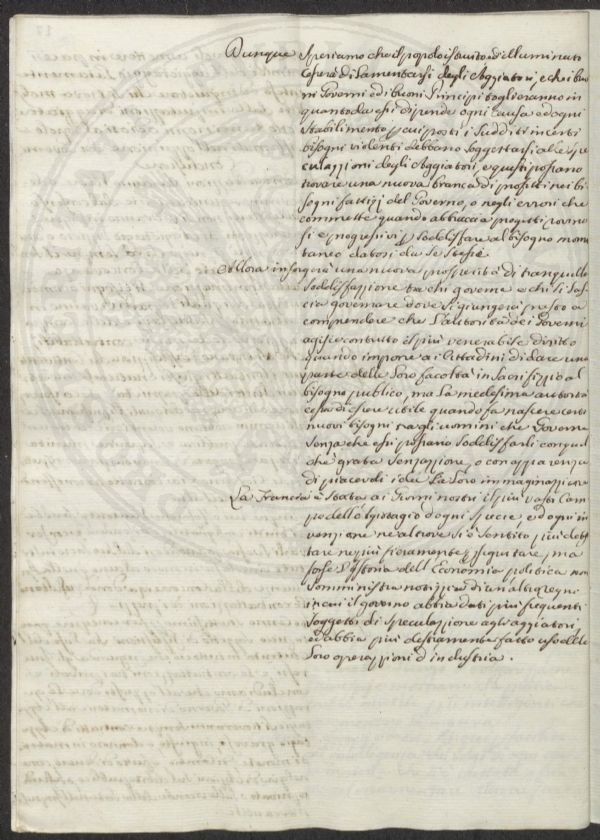 Dunque Speriamo che il popolo istruito ed illuminato
Cesserà di lamentarsi degli Aggiatori, e che i buo
ni Governi ed i buoni Principi toglieranno in
quanto da essi dipende ogni causa ed ogni
stabilimento p cui posti i Sudditi in certi
bisogni violenti debbano soggettarsi alle spe
culazzioni degli Aggiatori, e questi possano
trovare una nuova branca di profitti nei bi
sogni fattizj del Governo, o negli errori che
commette quando abbraccia progetti rovino
si e progressivi p soddisfare al bisogno mom
taneo datosi da se stesso
Allora insorgerà una nuova prosperità di tranquilla
soddisfazzione tra chi governa e chi si las
cia governare dove si giungerà presto a
comprendere che l'autorità dei Governi
agisce con tutto il più venerabile diritto
quando impone ai Cittadini di dare una
parte delle loro facoltà in Sacrifizio al
bisogno publico, ma la medesima autorità
cessa di essere utile quando fa nascere certi
nuovi bisogni tra gli uomini che Governa
senza che essi possano soddisfarli con qual
che grata sensazzione, o con apparenza
di piacevoli idee la loro immaginazzione
La Francia è stata ai Giorni nostri il più vasto Cam
po dell'aggiotagio d'ogni specie, ed ogni in
venzione ne altrove si è sentito più debi
tare ne più fieramente p seguitare, ma
forse l'Istoria dell'Economia politica non
somministra notizzia di un altro regno
in cui il governo abbia dati più frequenti
soggetti di speculazione agli aggiatori,
ed abbia più destramente fatto uso delle
loro operazzioni d'industria.